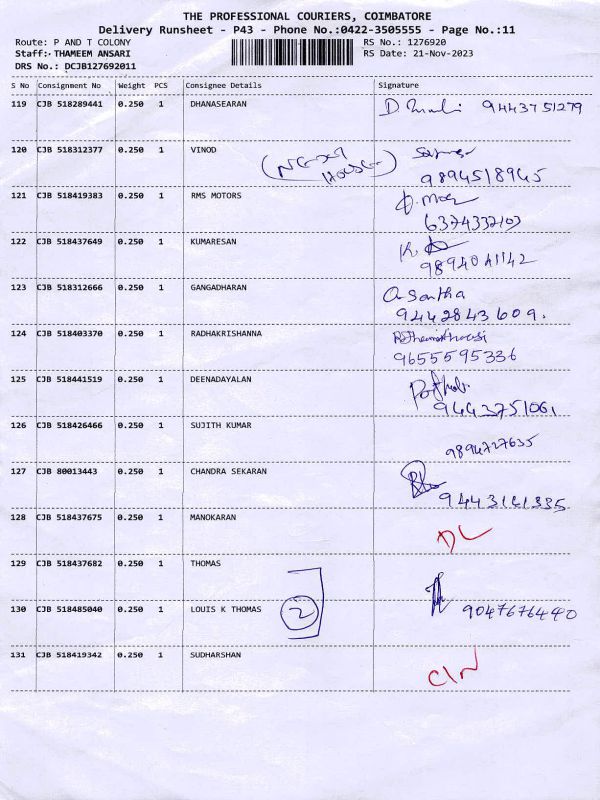 THE PROFESSIONAL COURIERS, COIMBATORE
Delivery Runsheet - P43 - Phone No.:0422-3505555 - Page No.:11
Route: P AND T COLONY RS No.: 1276920
Staff: THAMEEM ANSARI RS Date: 21-Nov-2023
DRS No.: DCJB127692011
S No Consignment No Weight PCS Consignee Details Signature
119 CJB 518289441 0.250 1 DHANASEARAN 9443751279
120 CJB 518312377 0.250 1 VINOD
(NEXT HOUSE)
9894518945
121 CJB 518419383 0.250 1 RMS MOTORS
6374332103
122 CJB 518437649 0.250 1 KUMARESAN
9894041142
123 CJB 518312666 0.250 1 GANGADHARAN
9442843609.
124 CJB 518403370 0.250 1 RADHAKRISHNNA
9655595336
125 CJB 518441519 0.250 1 DEENADAYALAN
9443751061
126 CJB 518426466 0.250 1 SUJITH KUMAR
9894727635
127 CJB 80013443 0.250 1 CHANDRA SEKARAN
9443141335
128 CJB 518437675 0.250 1 MANOKARAN
DL
129 CJB 518437682 0.250 1 THOMAS
130 CJB 518485040 0.250 1 LOUIS K THOMAS 2 9047676440
131 CJB 518419342 0.250 1 SUDHARSHAN
CIN